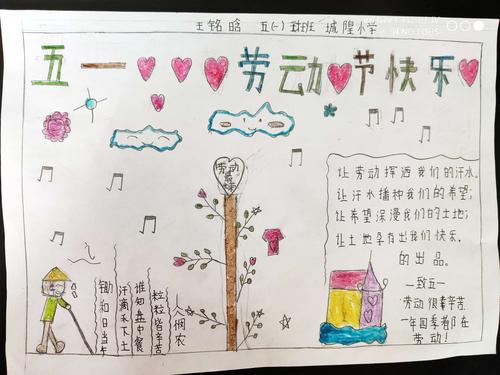 王铭晗 五(一)班 城隍小学
五一劳动节快乐
劳动
让劳动挥洒我们的汗水。
让汗水播种我们的希望;
让希望深漫我们的土地;
让土地孕育出我们快乐,
的出品。
一致五一
劳动很辛苦
一年四季都在
劳动!
锄和日当午
汗滴禾下土
谁知盘中餐
粒粒皆辛苦
悯农